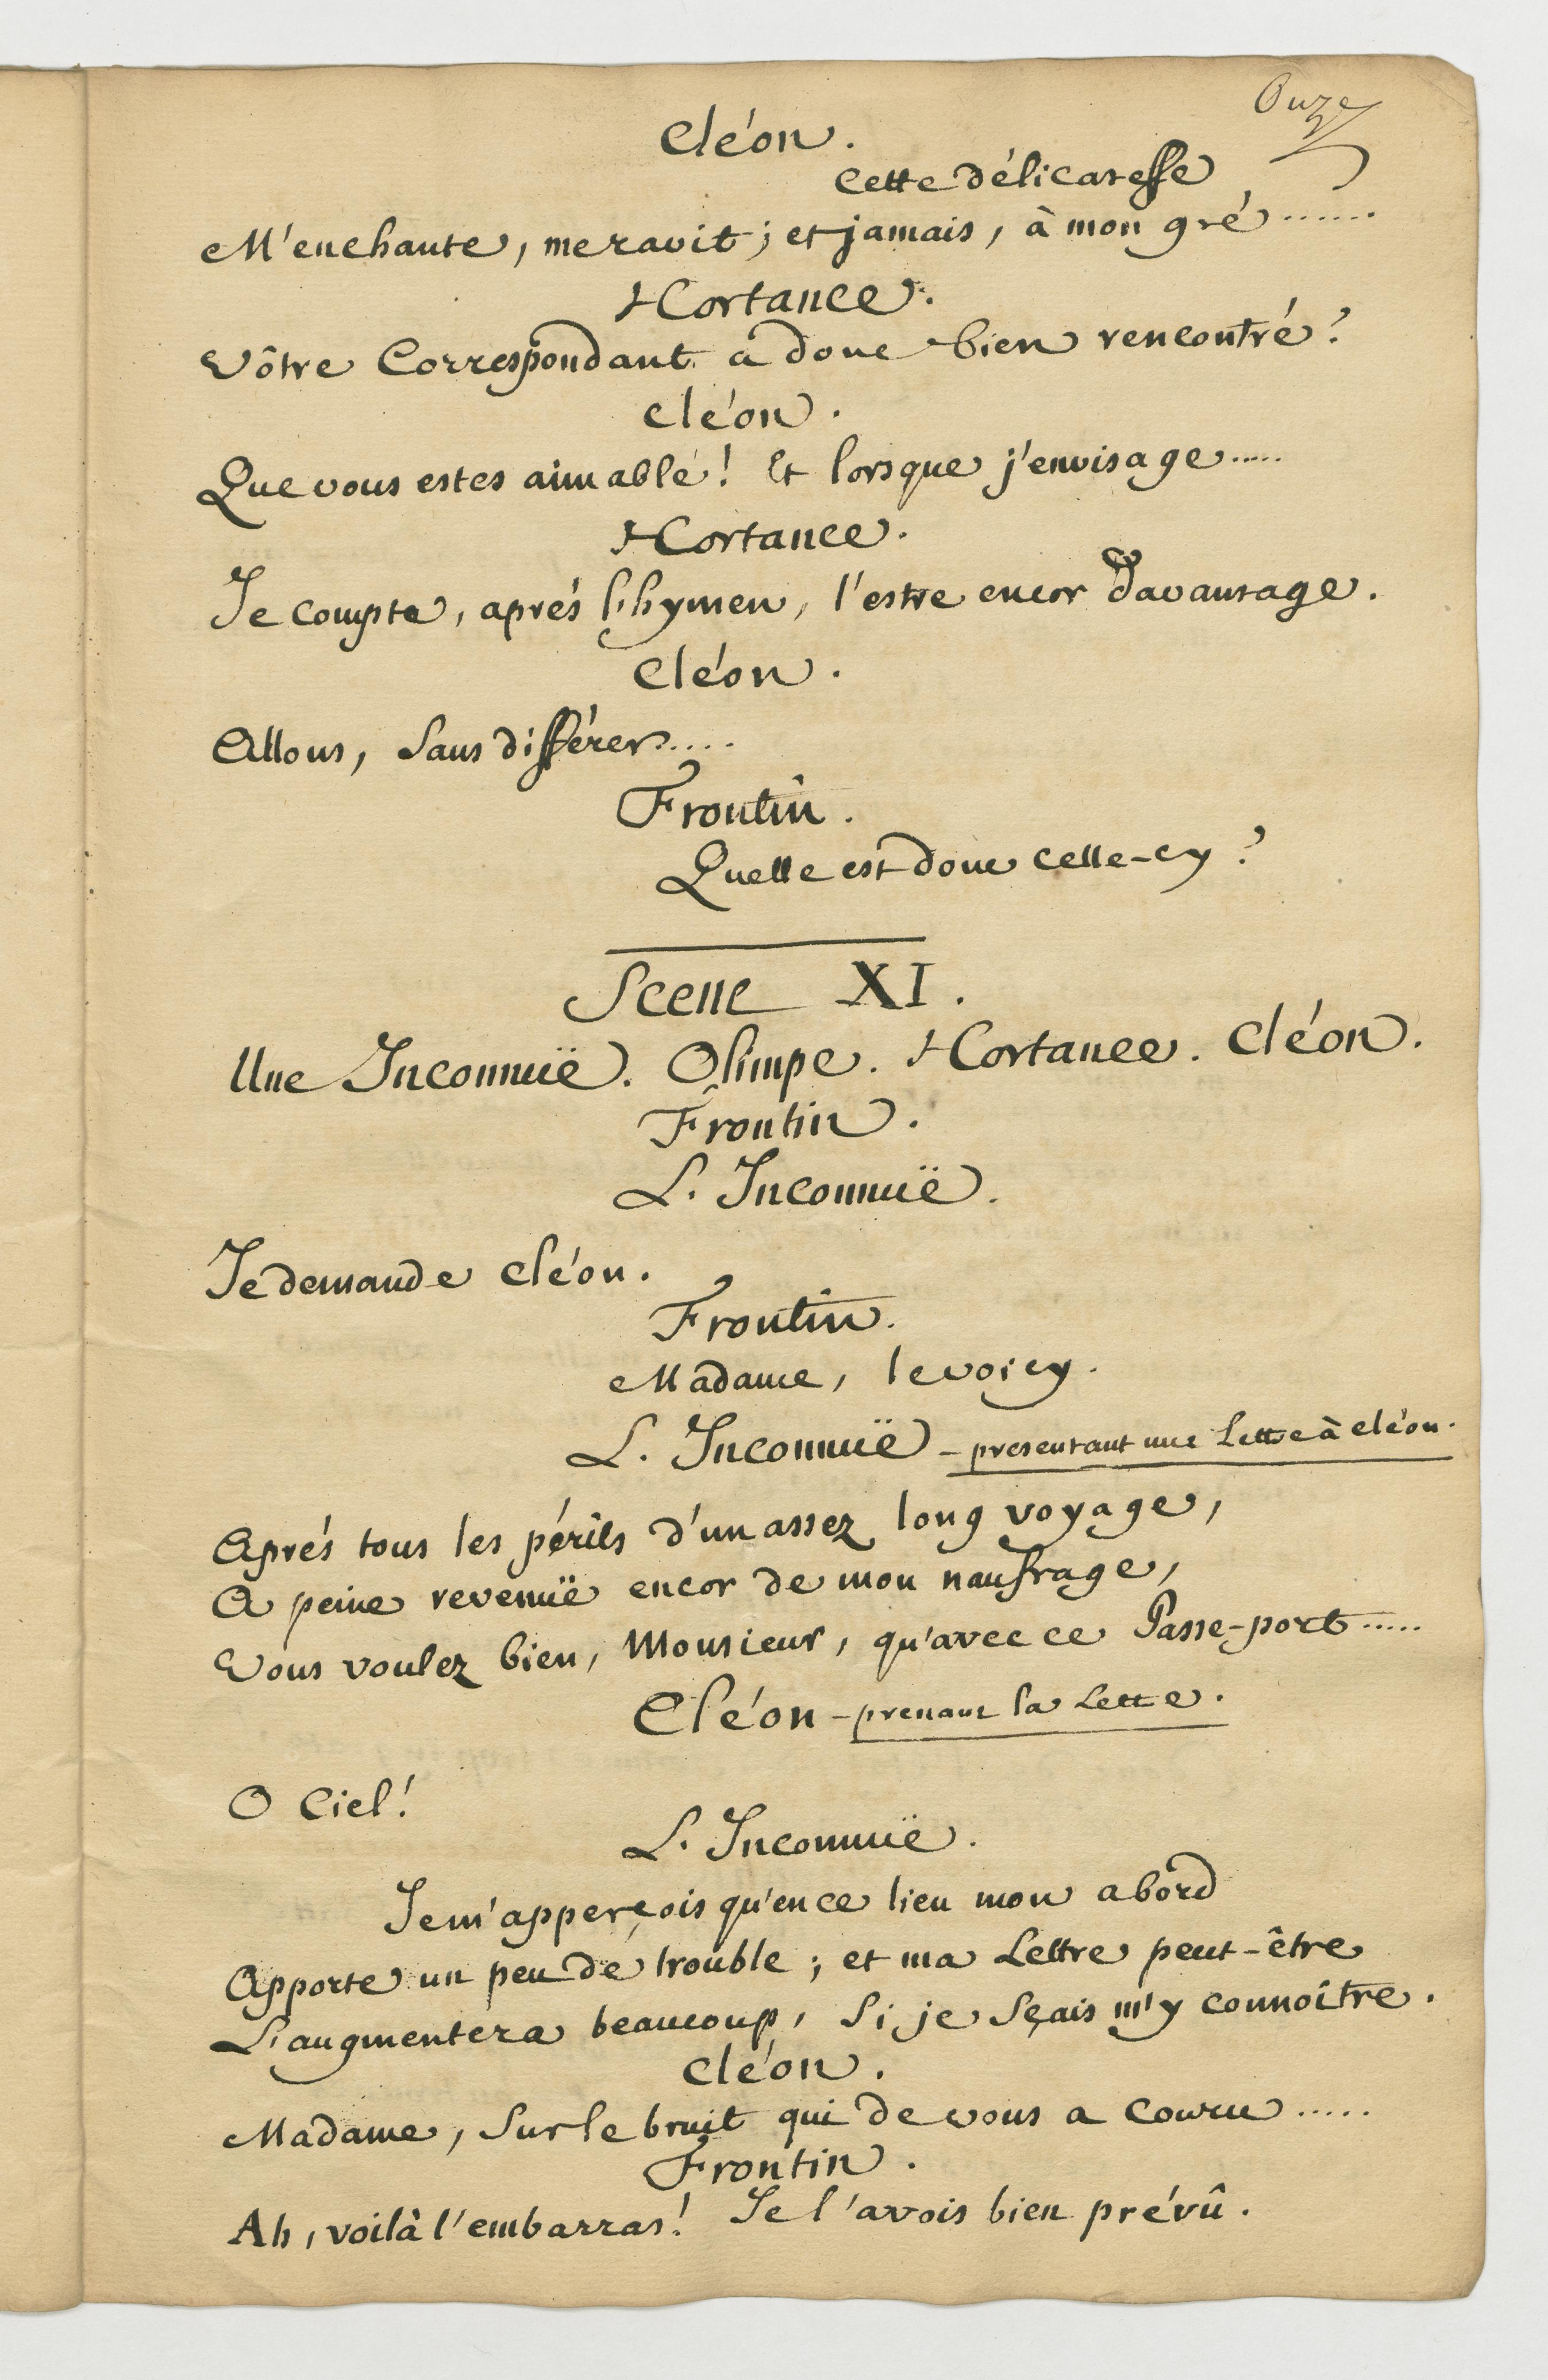 Onze
Cléon.
Cette délicatesse
M'enchante, me ravit; et jamais, à mon gré.......
Hortance.
Vôtre Correspondant a donc bien rencontré?
Cléon.
Que vous estes aimable! Et lorsque j'envisage.....
Hortance.
Je compte, aprés l'hymen, l'estre encor davantage.
Cléon.
Allons, sans différer.....
Frontin.
Quelle est donc celle-cy?
Scene XI.
Une Inconnuë. Olimpe. Hortance. Cléon.
Frontin.
L'Inconnuë.
Je demande Cléon.
Frontin.
Madame, le voicy.
L'Inconnuë - presentant une Lettre à Cléon.
Aprés tous les périls d'un assez long voyage,
A peine revenuë encor de mon naufrage,
Vous voulez bien, Monsieur, qu'avec ce Passe-port.....
Cléon - prenant la Lettre.
O Ciel!
L'Inconnuë.
Je m'apperçois qu'en ce lieu mon abord
Apporte un peu de trouble; et ma Lettre peut-être
L'augmentera beaucoup, si je sçais m'y connoître.
Cléon.
Madame, sur le bruit qui de vous a couru.....
Frontin.
Ah, voilà l'embarras! Je l'avois bien prévû.